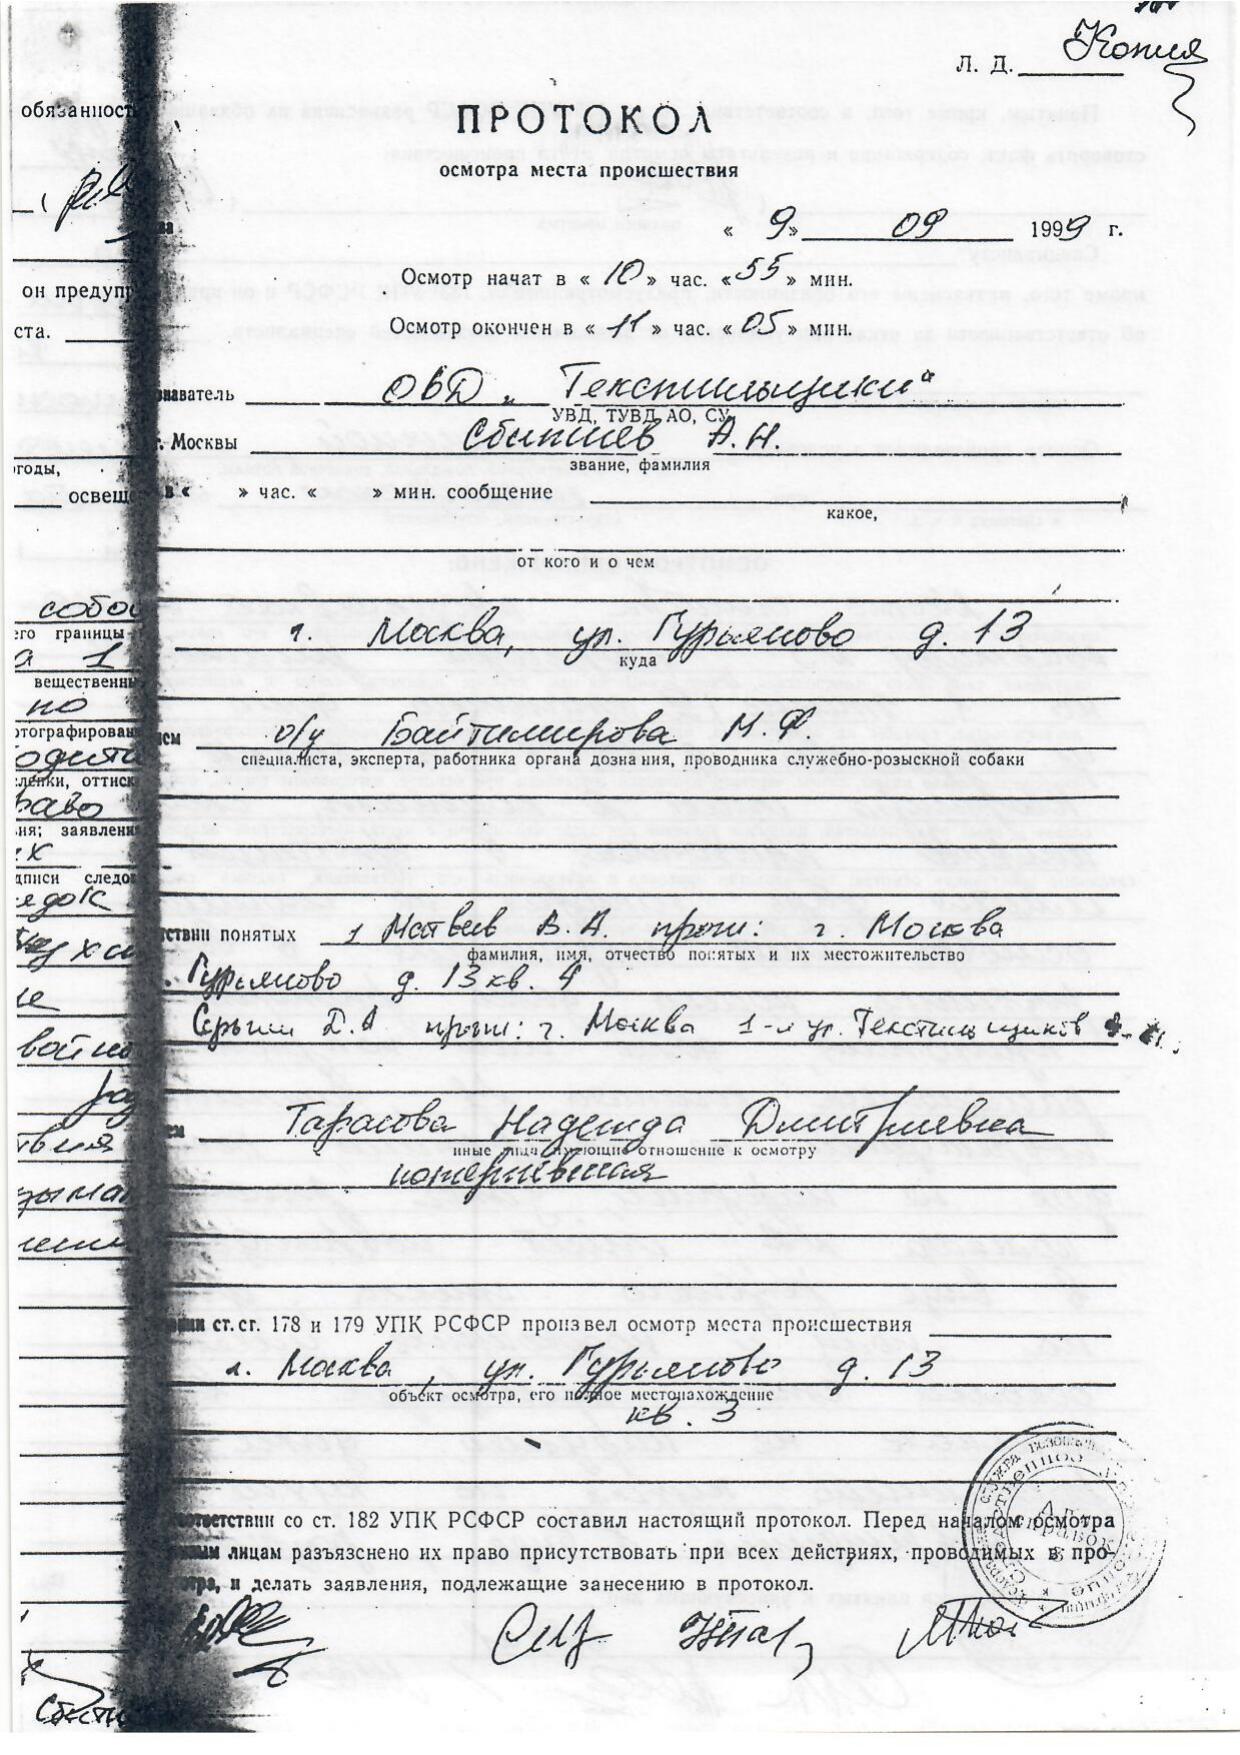 Копия
Л. Д.
обязанност
ПРОТОКОЛ
осмотра места происшествия
« 9 » 09 1999 г.
Осмотр начат в « 10 » час. « 55 » мин.
он предупр
Осмотр окончен в « 11 » час. « 05 » мин.
ста.
знаватель ОВД „Текстильщики“
УВД, ТУВД, АО, СУ
г. Москвы А. Н.
звание, фамилия
годы,
освещ
в « » час. « » мин. сообщение
какое,
от кого и о чем
собой
его границы
г. Москва, ул. Гурьяново д. 13
куда
а 1
вещественн
по
отографирован
ем о/у Байтимирова М. Ф
специалиста, эксперта, работника органа дознания, проводника служебно-розыскной собаки
одито
право
ия; заявлени
их
дписи следо
ствии понятых 1 Матвеев В. А. прож: г. Москва
фамилия, имя, отчество понятых и их местожительство
Гурьяново д. 13 кв. 4
Д. А прож: г. Москва 1-я ул. Текстильщиков
ем Тарасова Надежда Дмитриевна
иные лица имеющие отношение к осмотру
потерпевшая
ании ст.ст. 178 и 179 УПК РСФСР произвел осмотр места происшествия
г. Москва, ул. Гурьяново д. 13
объект осмотра, его полное местонахождение
кв. 3
ответствии со ст. 182 УПК РСФСР составил настоящий протокол. Перед началом осмотра
лицам разъяснено их право присутствовать при всех действиях, проводимых в про-
отра, и делать заявления, подлежащие занесению в протокол.